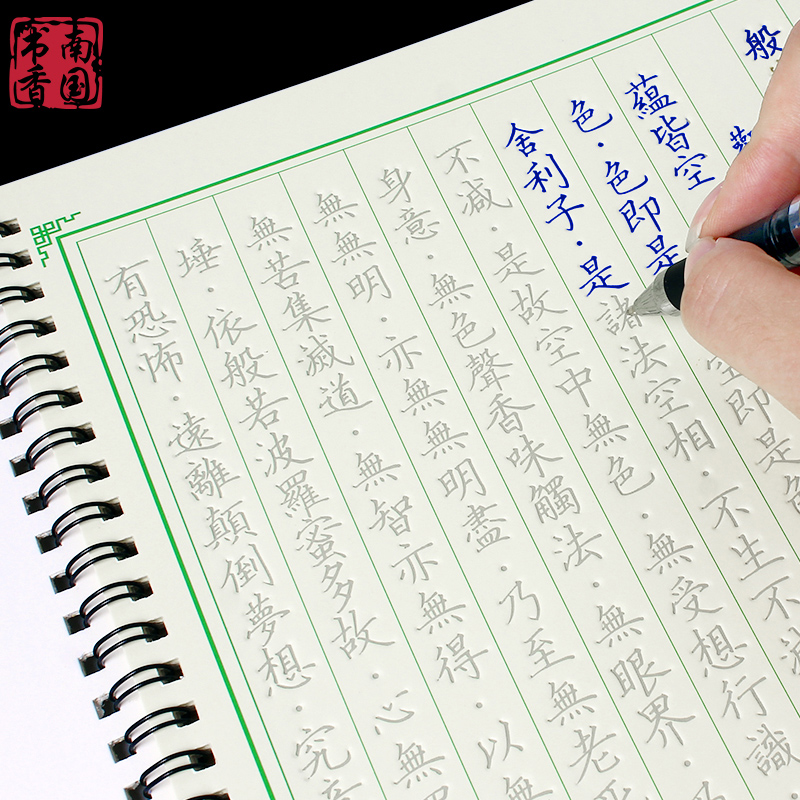 南国
书香
般
蘊皆空
色·色即是空即是色
舍利子·是諸法空相·不生不滅
不减·是故空中無色·無受想行識
身意·無色聲香味觸法·無眼界·
無無明·亦無無明盡·乃至無老死
無苦集滅道·無智亦無得·以無
埵·依般若波羅蜜多故·心無
有恐怖·遠離顛倒夢想·究竟